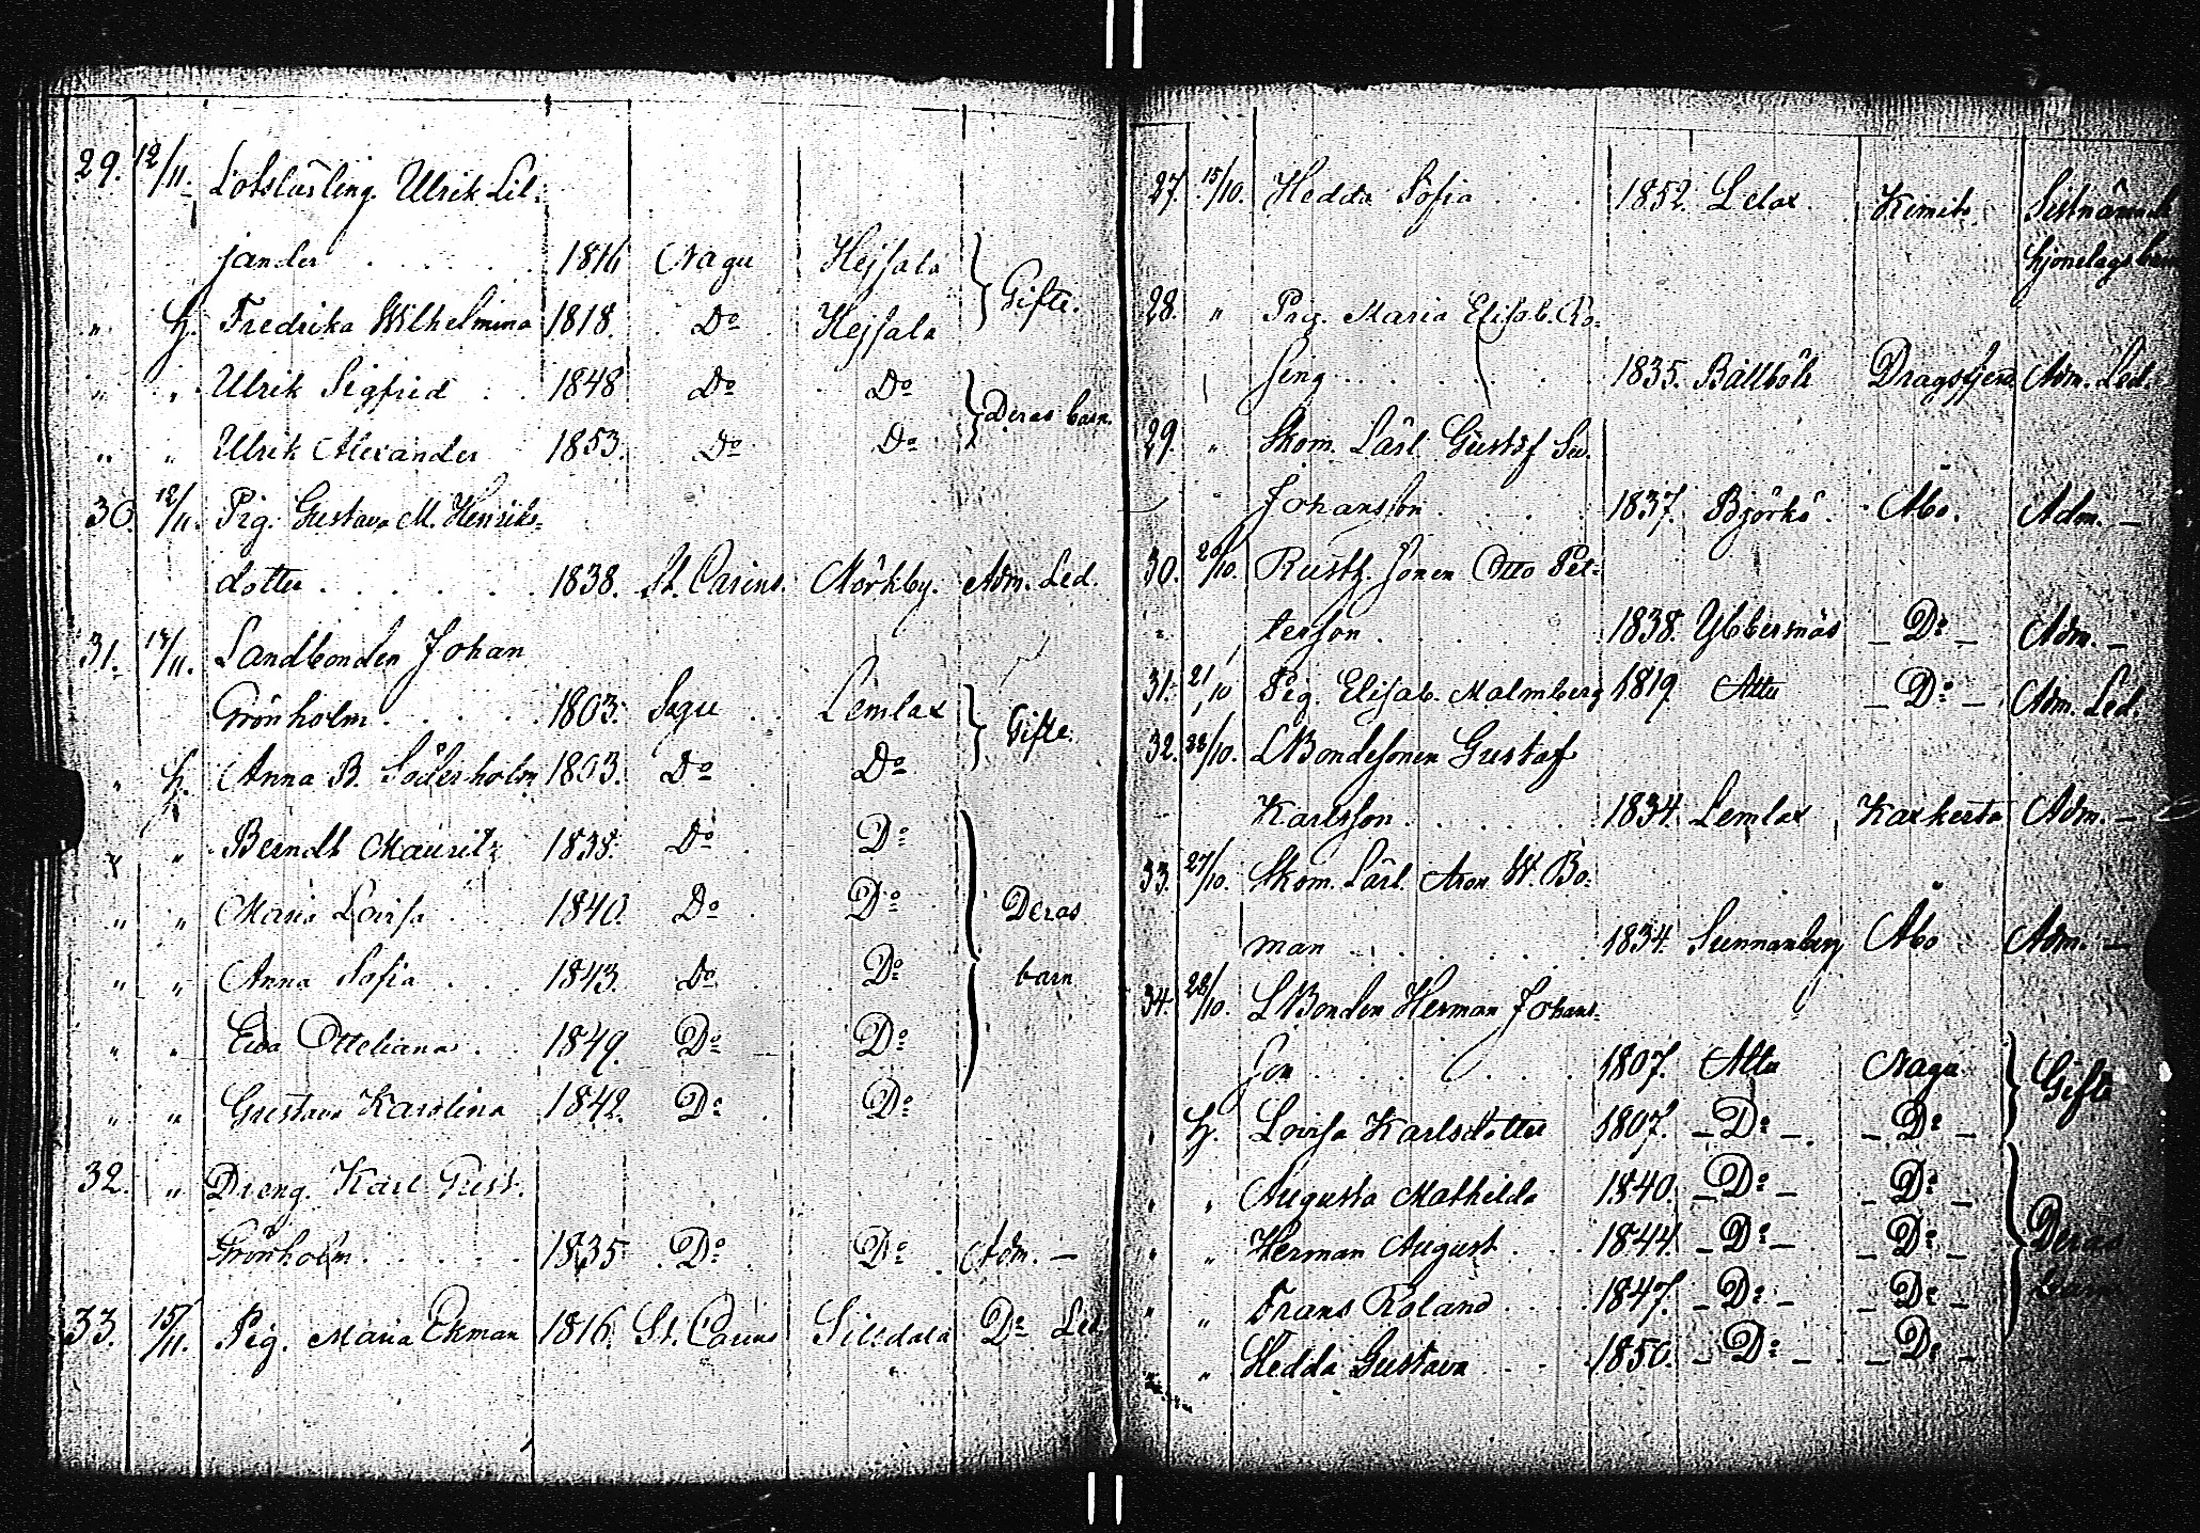 29. 12/11. Lotslärling. Ulrik Lil-
jander . . . . . 1816 Nagu Hejsala } Gifte.
" H. Fredrika Wilhelmina 1818. Do Hejsala
" " Ulrik Sigfrid . . 1848 Do Do } Deras barn.
" " Ulrik Alexander 1853. Do Do
30. 12/11. Pig. Gustava M. Henriks-
dotter . . . . . . 1838. St. Carins. Mörkby. Adm. Led.
31. 14/11. Landbonden Johan
Grönholm . . . . . 1803. Sagu . . Lemlax } Gifte.
" H. Anna B. Söderholm 1803. Do Do
" " Berndt Mauritz 1838. Do Do
" " Maria Lovisa . . 1840. Do Do } Deras
" " Anna Sofia . . . 1843. Do Do barn
" " Eva Otteliana . . 1849. Do Do
" " Gustava Karolina 1842. Do Do
32. " Dreng. Karl Gust.
Grönholm . . . . . 1835 Do Do Adm. —
33. 15/11. Pig. Maria Ekman 1816. St. Carins Do Led
27. 15/10. Hedda Sofia . . . 1852. Lelax Kimito
28. " Pig. Maria Elisab. Ro-
sing . . . . . . . 1835. Dragsfjerd Adm. Led.
29. " Skom. Lärl. Gustaf
Johansson . . . . 1837. Björkö. Åbo. Adm. —
30. 20/10. Rusth. Sonen Otto Pet-
terson . . . . . 1838. Ybbersnäs — Do — Adm. —
31. 21/10 Pig. Elisab. Malmberg 1819. Attu — Do — Adm. Led.
32. 22/10. LBondesonen Gustaf
Karlsson . . . . . 1834. Lemlax Kaxkerta Adm. —
33. 27/10. Skom. Lärl. Aron W. Bo-
man . . . . . . . 1834. Sunnanberg Åbo Adm. —
34. 28/10. LBonden Herman Johans-
son . . . . . . . 1807. Attu Nagu } Gifte
" H. Lovisa Karlsdotter 1807. — Do — — Do —
" " Augusta Mathilda 1840. — Do — — Do —
" " Herman August . . . 1844. — Do — — Do — } Deras
" " Frans Roland . . . . 1847. — Do — — Do — barn
" Hedda Gustava . . . 1850. — Do — — Do —